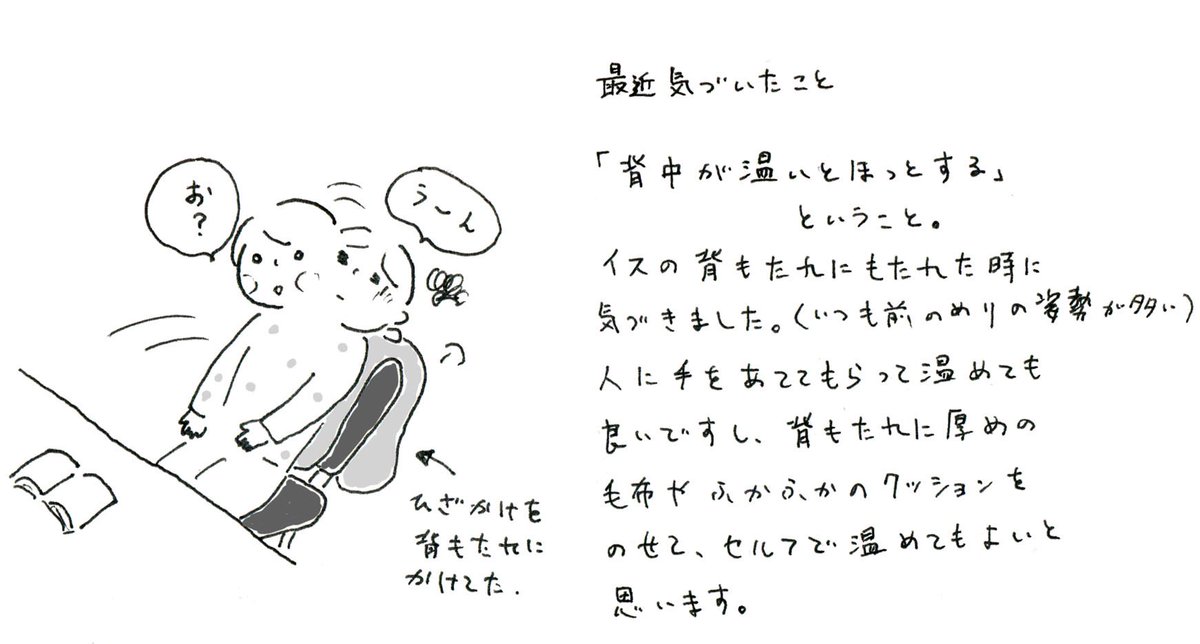 お?
うーん
ひざかけを
背もたれに
かけてた.
最近気づいたこと
「背中が温いとほっとする」
ということ。
イスの背もたれにもたれた時に
気づきました。(いつも前のめりの姿勢が多い)
人に手をあててもらって温めても
良いですし、背もたれに厚めの
毛布やふかふかのクッションを
のせて、セルフで温めてもよいと
思います。